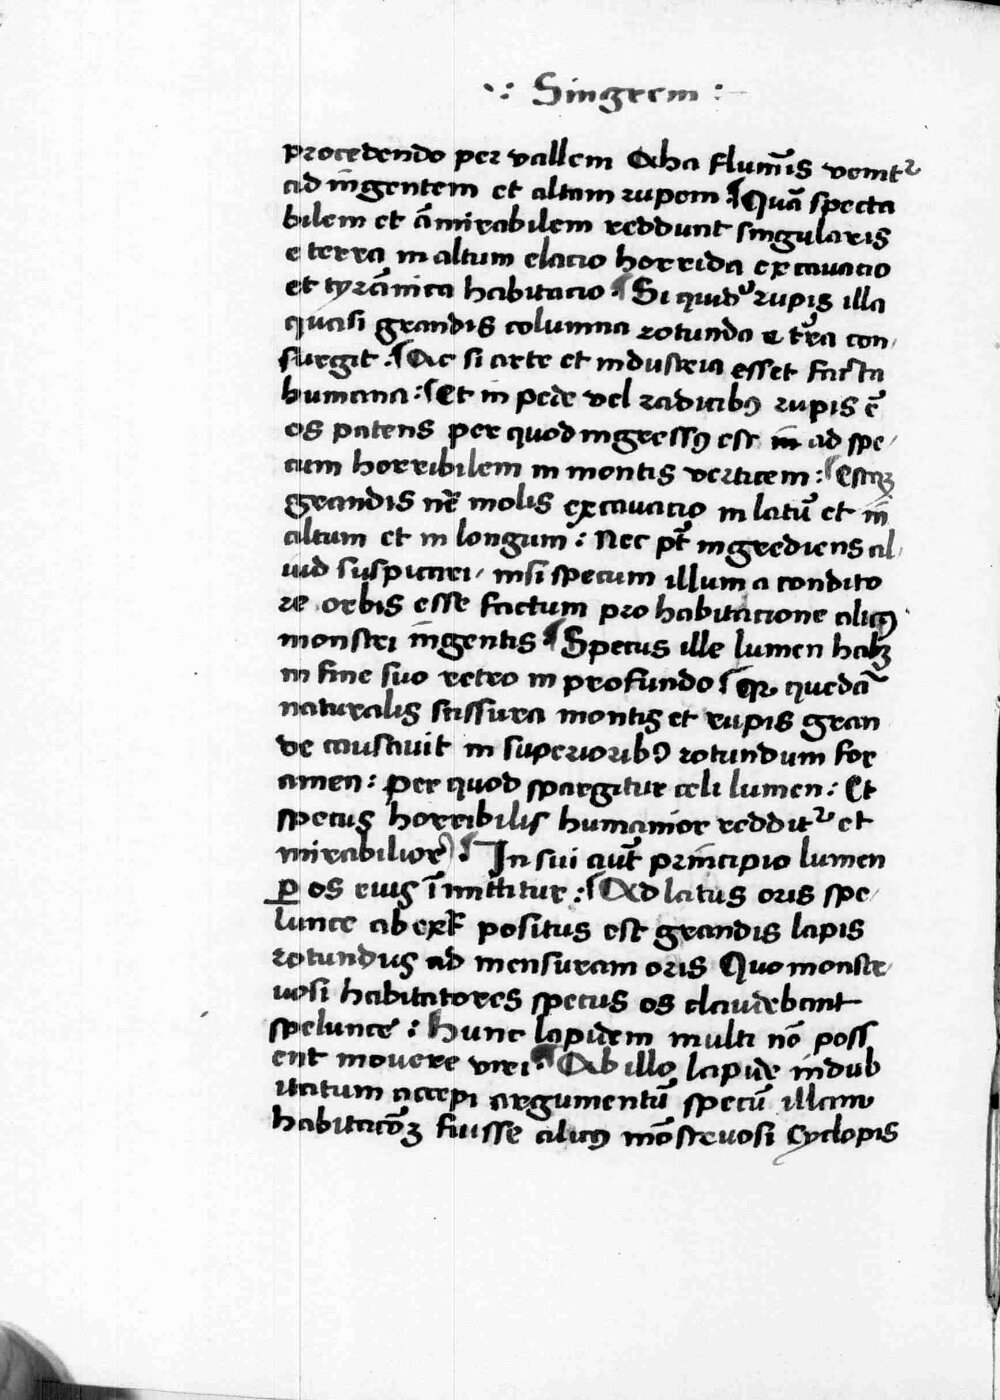 ·.: Singrem :
procedendo per vallem Acha flumīs venitᷣ
ad ingentem et altam rupem : Quā specta
bilem et āmirabilem reddunt singularis
e terra in altum elacio horrida excavacio
et tyrānica habitacio : Si quidē rupis illa
quasi grandis columna rotunda e tr̄a con
surgit : Ac si arte et industria esset facta
humana : Et in pede vel radicibꝰ rupis ē
os patens per quod ingressꝰ est in ad spe
cum horribilem in montis verticem : Estqꝫ
grandis molis excavacio in latū et in
altum et in longum : Nec pt̄ ingrediens al
iud suspicari nisi specum illum a condito
re orbis esse factum pro habitacione alicꝰ
monstri ingentis Specus ille lumen habꝫ
in fine suo retro in profundo quedā
naturalis scissura montis et rupis gran
de causavit in superioribꝰ rotundum for
amen : per quod spargitur celi lumen : Et
specus horribilis humanior redditᷣ et
mirabilior : In sui aut̄ principio lumen
ꝑ os eius īmittitur : Ad latus oris spe
lunce ab positus est grandis lapis
rotundus ad mensuram oris Quo monstr
uosi habitatores specus os claudebant
spelunce : Hunc lapidem multi nō poss
ent movere viri Ab illo lapide indub
itatum accepi argumentū specū illam
habitacōꝫ fuisse alicꝰ mōstruosi Cyclopis